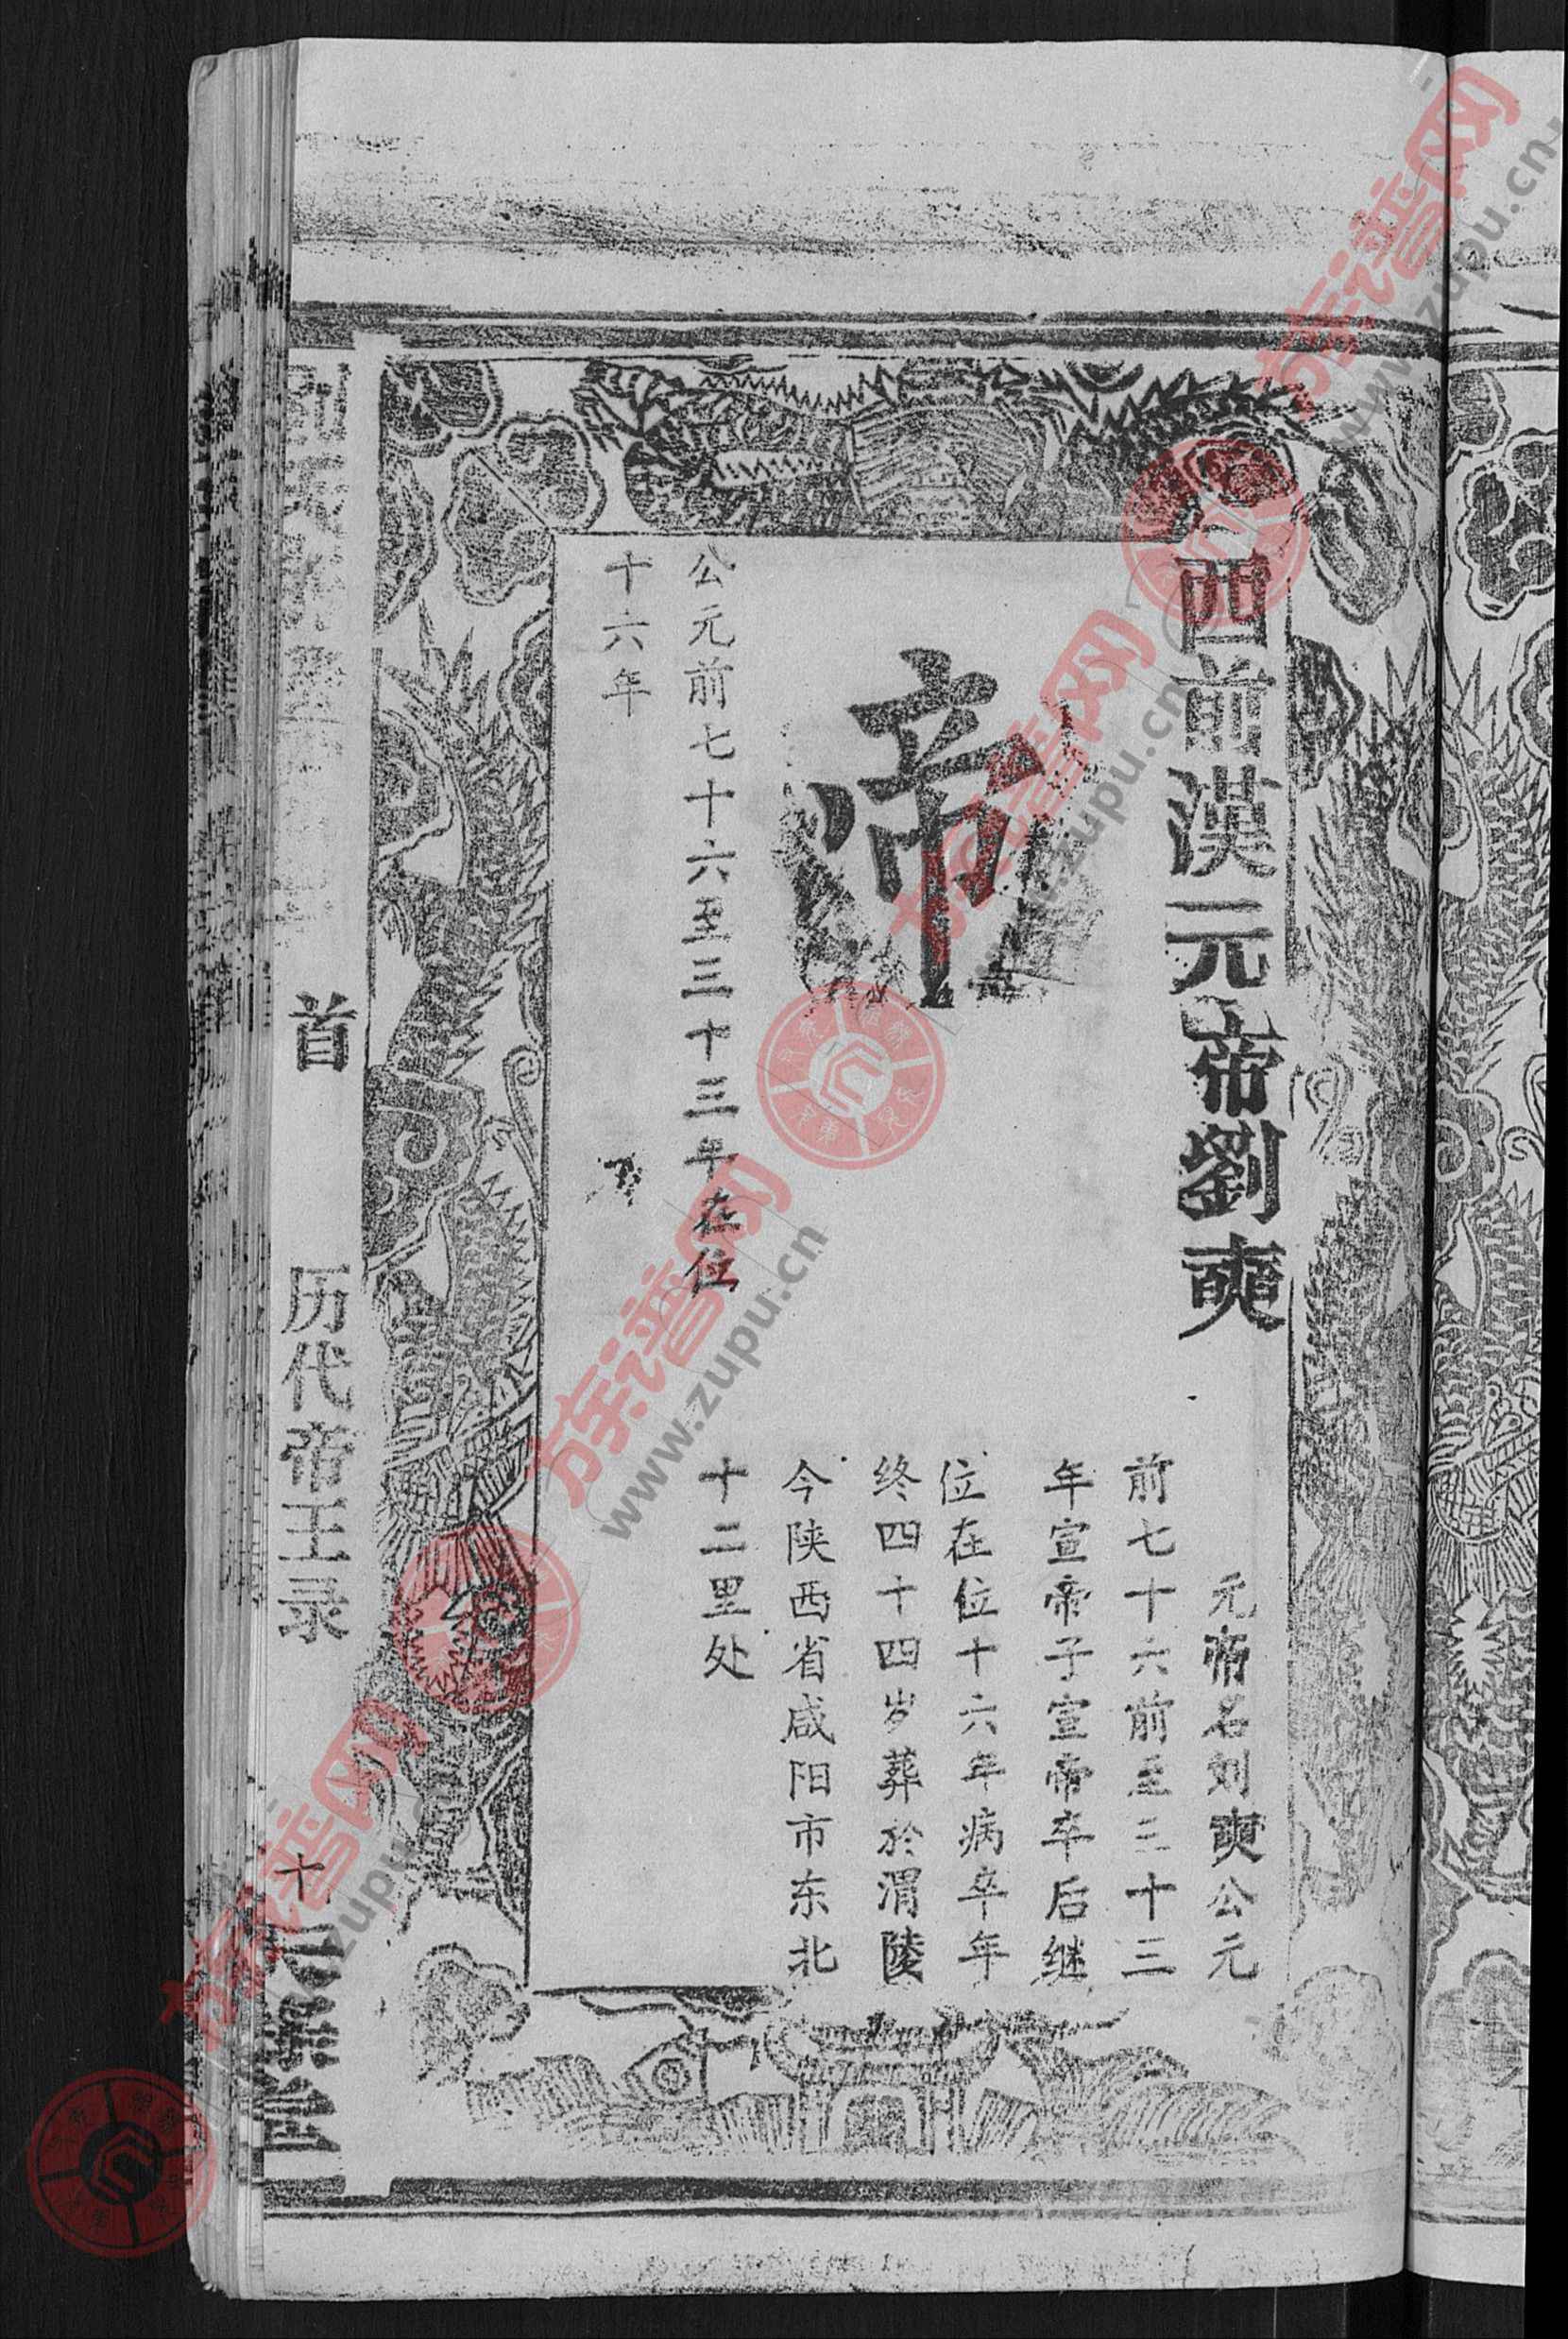 西前漢元帝劉奭
元帝名刘奭公元
前七十六前至三十三
年宣帝子宣帝卒后继
位在位十六年病卒年
终四十四岁葬於渭陵
今陕西省咸阳市东北
十二里处
帝
公元前七十六至三十三年在位
十六年
首
历代帝王录
族谱网 www.zupu.cn
族谱网 www.zupu.cn
族谱网 www.zupu.cn
族谱网 www.zupu.cn